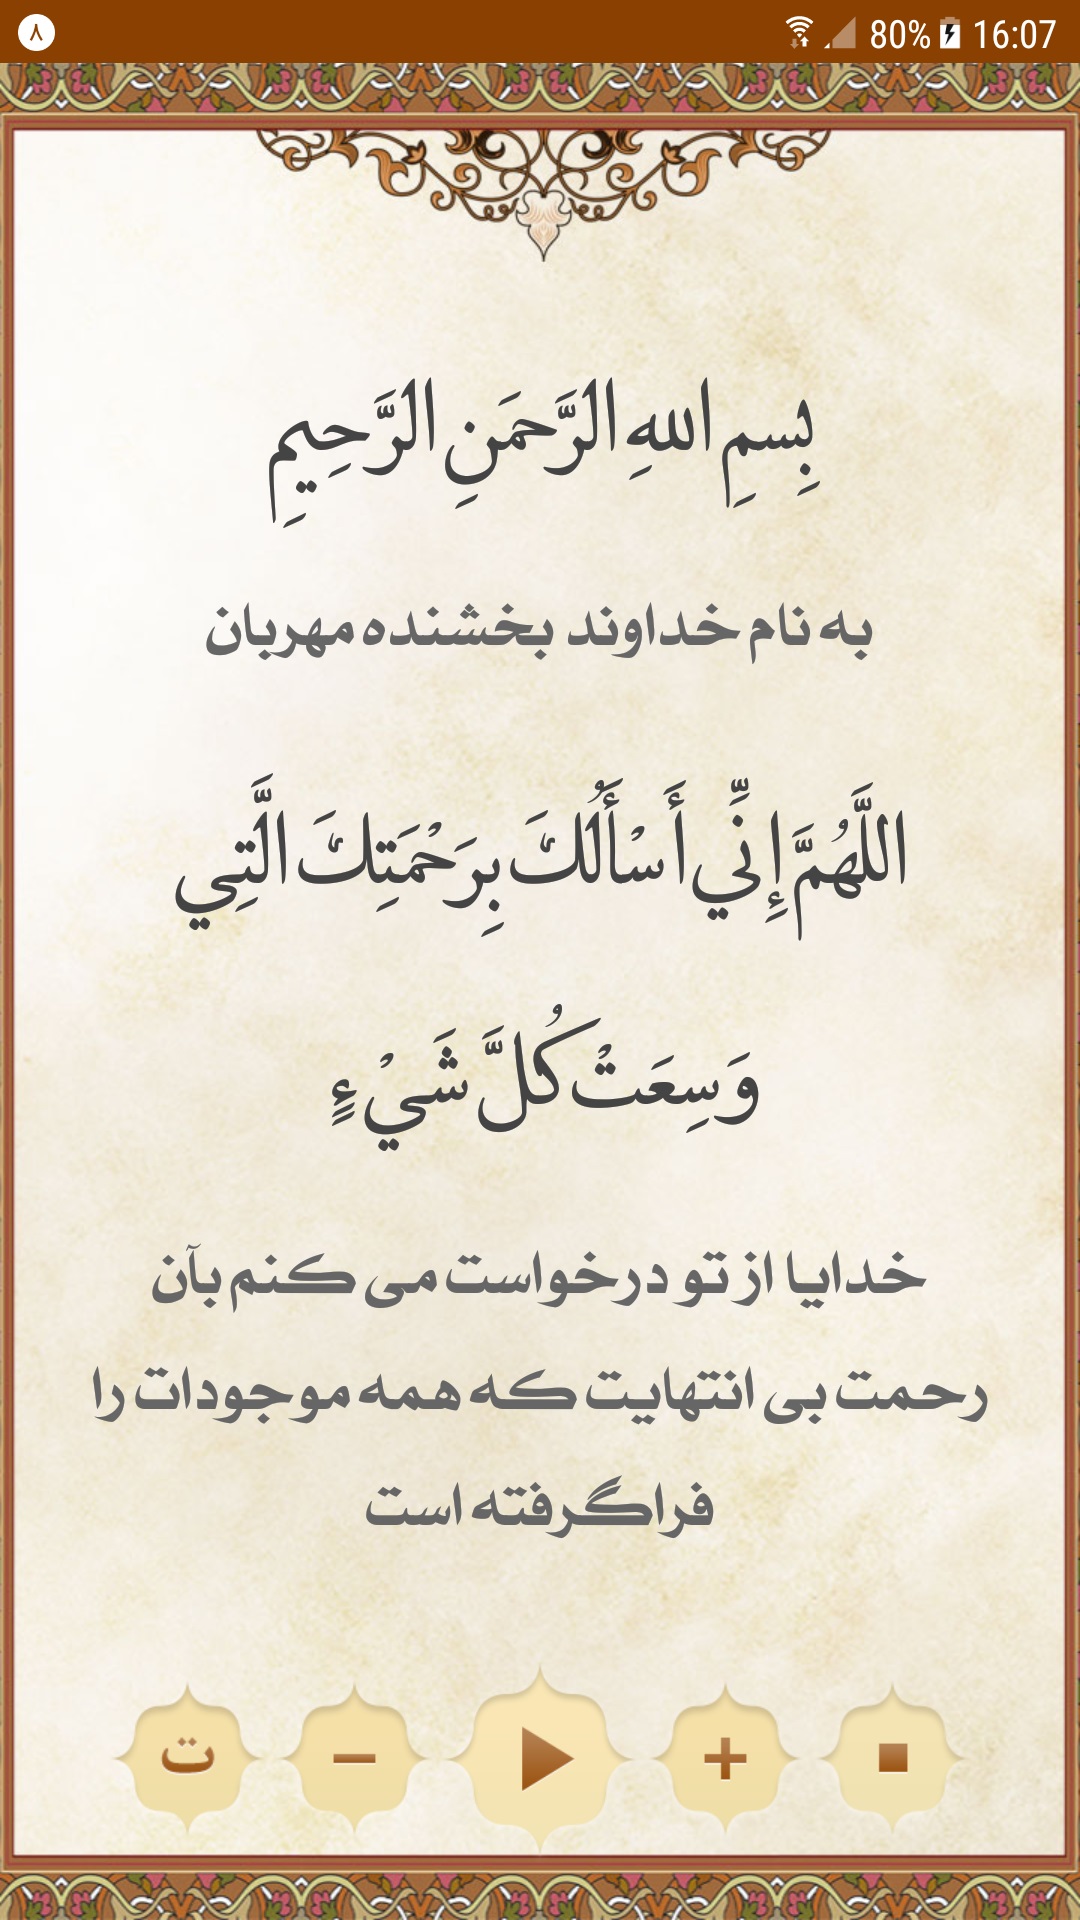 ۸ 80% 16:07
بِسمِ اللهِ الرَّحمَنِ الرَّحِیمِ
به نام خداوند بخشنده مهربان
اللَّهُمَّ إِنِّي أَسْأَلُكَ بِرَحْمَتِكَ الَّتِي
وَسِعَتْ كُلَّ شَيْءٍ
خدایا از تو درخواست می کنم بآن
رحمت بی انتهایت که همه موجودات را
فراگرفته است
ت − +